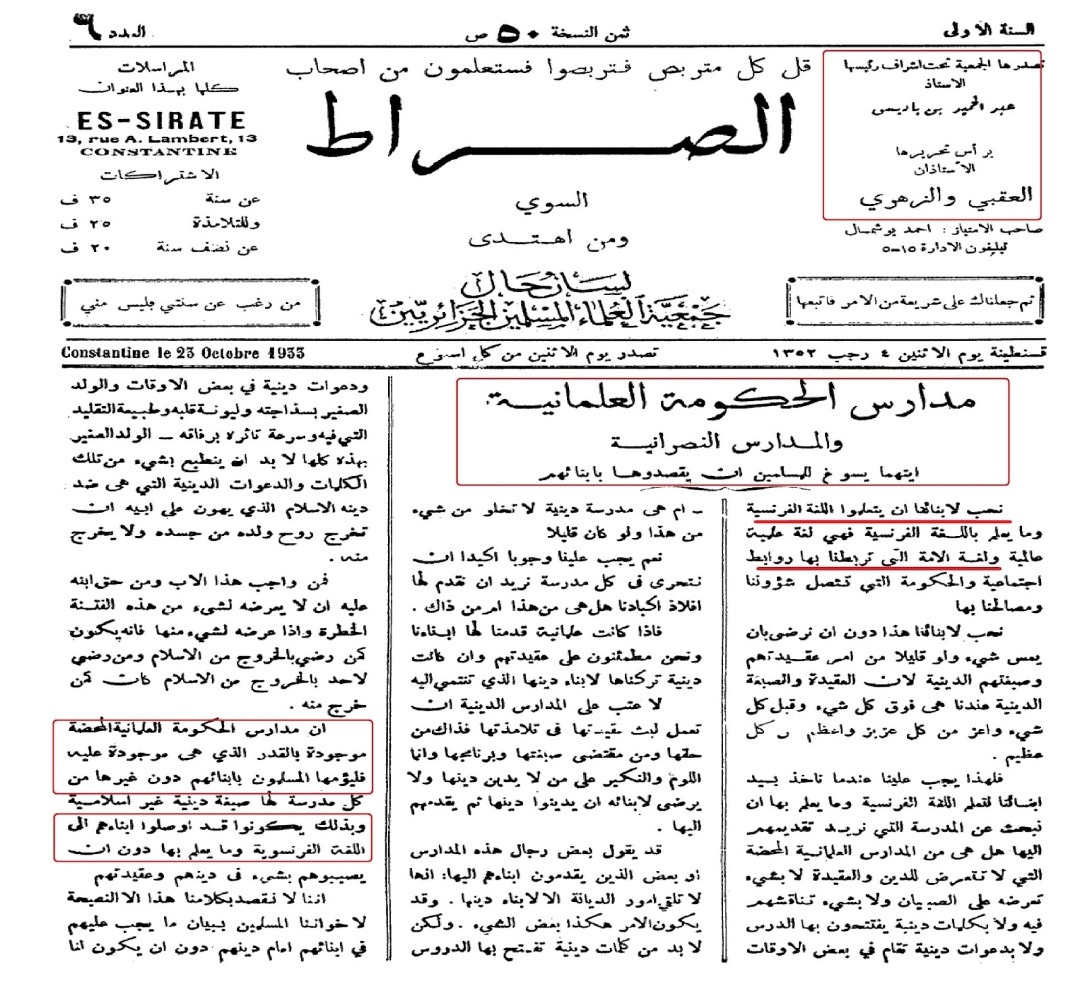 السنة الأولى
ثمن النسخة ٥٠ ص
العدد ٦
تصدرها الجمعية تحت اشراف رئيسها
الاستاذ
عبد الحميد بن باديس
يرأس تحريرها
الأستاذان
العقبي والزهري
صاحب الامتياز : احمد بوشمال
تيليفون الادارة ١٥-٥
قل كل متربص فتربصوا فستعلمون من اصحاب
الصراط
السوي
ومن اهتدى
المراسلات
كلها بهذا العنوان
ES-SIRATE
13, rue A. Lambert, 13
CONSTANTINE
الاشتراكات
عن سنة ٣٥ ف
وللتلامذة ٢٥ ف
عن نصف سنة ٢٠ ف
ثم جعلناك على شريعة من الامر فاتبعها
لسان حال
جمعية العلماء المسلمين الجزائريين
من رغب عن سنتي فليس مني
قسنطينة يوم الاثنين ٤ رجب ١٣٥٢
تصدر يوم الاثنين من كل اسبوع
Constantine le 23 Octobre 1933
مدارس الحكومة العلمانية
والمدارس النصرانية
ايتهما يسوغ للمسلمين ان يقصدوها بابنائهم
نحب لابنائنا ان يتعلموا اللغة الفرنسية
وما يعلم باللغة الفرنسية فهي لغة علمية
عالمية ولغة الامة التي تربطنا بها روابط
اجتماعية والحكومة التي تتصل شؤوننا
ومصالحنا بها
نحب لابنائنا هذا دون ان نرضى بان
يمس شيء ولو قليلا من امر عقيدتهم
وصبغتهم الدينية لان العقيدة والصبغة
الدينية عندنا هي فوق كل شيء وقبل كل
شيء واعز من كل عزيز واعظم من كل
عظيم .
فلهذا يجب علينا عندما ناخذ بيد
ابنائنا لتعلم اللغة الفرنسية وما يعلم بها ان
نبحث عن المدرسة التي نريد تقديمهم
اليها هل هي من المدارس العلمانية المحضة
التي لا تتعرض للدين والعقيدة لا بشيء
تعرضه على الصبيان ولا بشيء تناقشهم
فيه ولا بكلمات دينية يفتتحون بها الدرس
ولا بدعوات دينية تقام في بعض الاوقات
– ام هي مدرسة دينية لا تخلو من شيء
من هذا ولو كان قليلا
نعم يجب علينا وجوبا اكيدا ان
نتحرى في كل مدرسة نريد ان نقدم لها
افلاذ اكبادنا هل هي من هذا ام من ذاك .
فاذا كانت علمانية قدمنا لها ابناءنا
ونحن مطمئنون على عقيدتهم وان كانت
دينية تركناها لابناء دينها الذي تنتمي اليه
لا عتب على المدارس الدينية ان
تعمل لبث عقيدتها في تلامذتها فذاك من
حقها ومن مقتضى صبغتها وبرنامجها وانما
اللوم والنكير على من لا يدين دينها ولا
يرضى لابنائه ان يدينوا دينها ثم يقدمهم
اليها .
قد يقول بعض رجال هذه المدارس
او بعض الذين يقدمون ابناءهم اليها: انها
لا تلقي امور الديانة الا لابناء دينها . وقد
يكون الامر هكذا بعض الشيء . ولكن
لا بد من كلمات دينية تفتتح بها الدروس
ودعوات دينية في بعض الاوقات والولد
الصغير بسذاجته وليونة قلبه وطبيعة التقليد
التي فيه وسرعة تاثره برفاقه – الولد الصغير
بهذه كلها لا بد ان ينطبع بشيء من تلك
الكلمات والدعوات الدينية التي هي ضد
دينه الاسلام الذي يهون على ابيه ان
تخرج روح ولده من جسده ولا يخرج
منه .
فمن واجب هذا الاب ومن حق ابنه
عليه ان لا يعرضه لشيء من هذه الفتنة
الخطرة واذا عرضه لشيء منها فانه يكون
كمن رضي بالخروج من الاسلام ومن رضي
لاحد بالخروج من الاسلام كان كمن
خرج منه .
ان مدارس الحكومة العلمانية المحضة
موجودة بالقدر الذي هي موجودة عليه
فليؤمها المسلمون بابنائهم دون غيرها من
كل مدرسة لها صبغة دينية غير اسلامية
وبذلك يكونوا قد اوصلوا ابناءهم الى
اللغة الفرنسوية وما يعلم بها دون ان
يصيبوهم بشيء في دينهم وعقيدتهم
اننا لا نقصد بكلامنا هذا الا النصيحة
لاخواننا المسلمين ببيان ما يجب عليهم
في ابنائهم امام دينهم دون ان يكون لنا